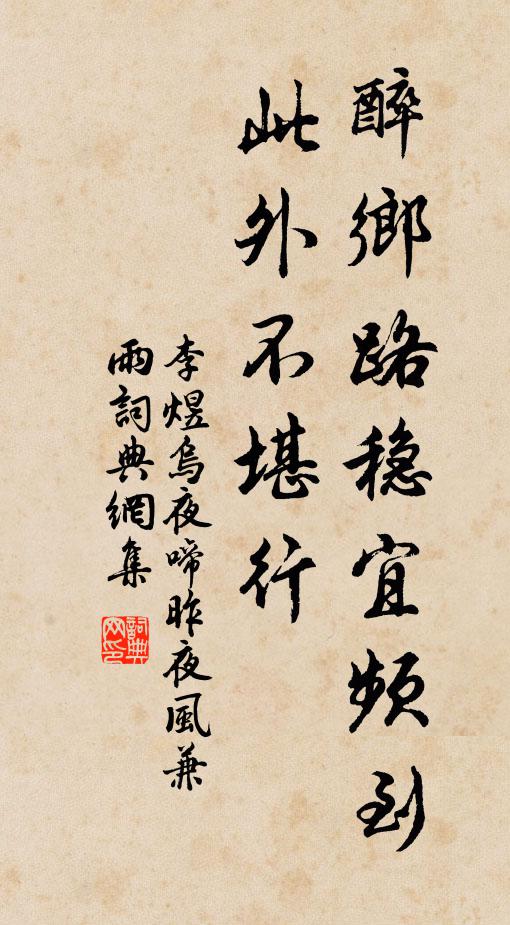 醉鄉路穩宜頻到
此外不堪行
李煜烏夜啼昨夜風兼
雨詞典網集
詞典網印